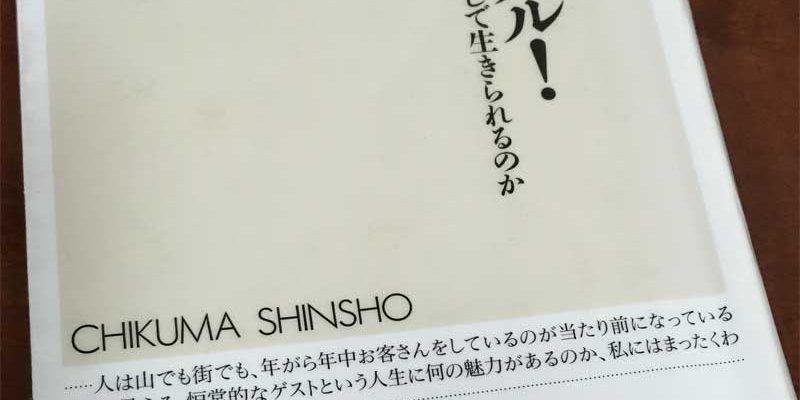 ル!
て生きられるのか
CHIKUMA SHINSHO
……人は山でも街でも、年がら年中お客さんをしているのが当たり前になっている
恒常的なゲストという人生に何の魅力があるのか、私にはまったくわ